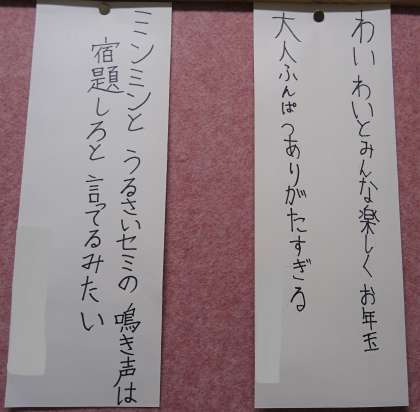 わいわいとみんな楽しくお年玉
大人ふんぱつありがたすぎる
ミンミンと うるさいセミの 鳴き声は
宿題しろと 言てるみたい